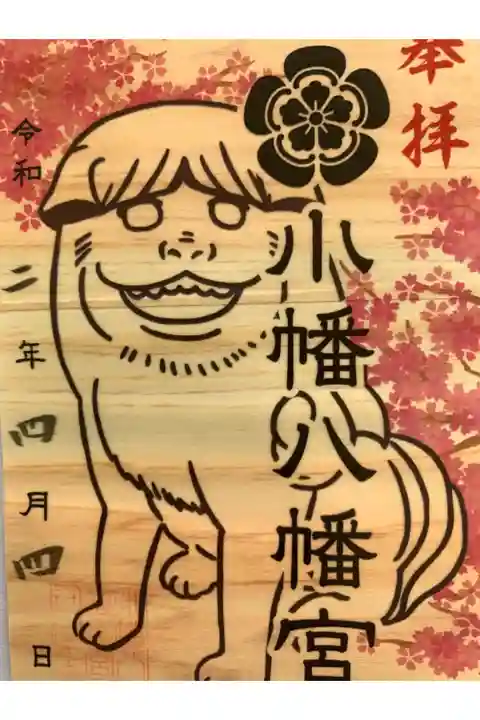 奉拝
小幡八幡宮
令和二年四月四日